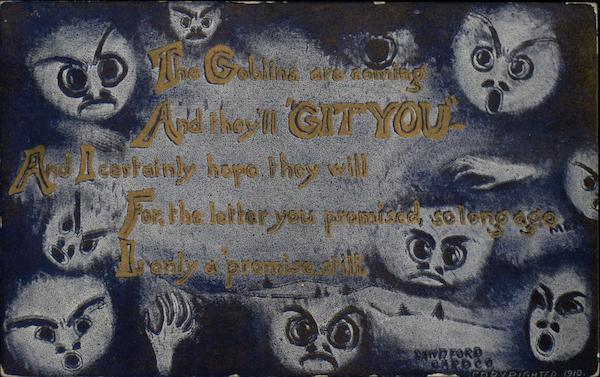 The Goblins are coming
And they'll "GIT YOU"-
And I certainly hope they will
For, the letter you promised, so long ago
Is only a 'promise, still.
SANDFORD
CARD CO
COPYRIGHTED 1910.